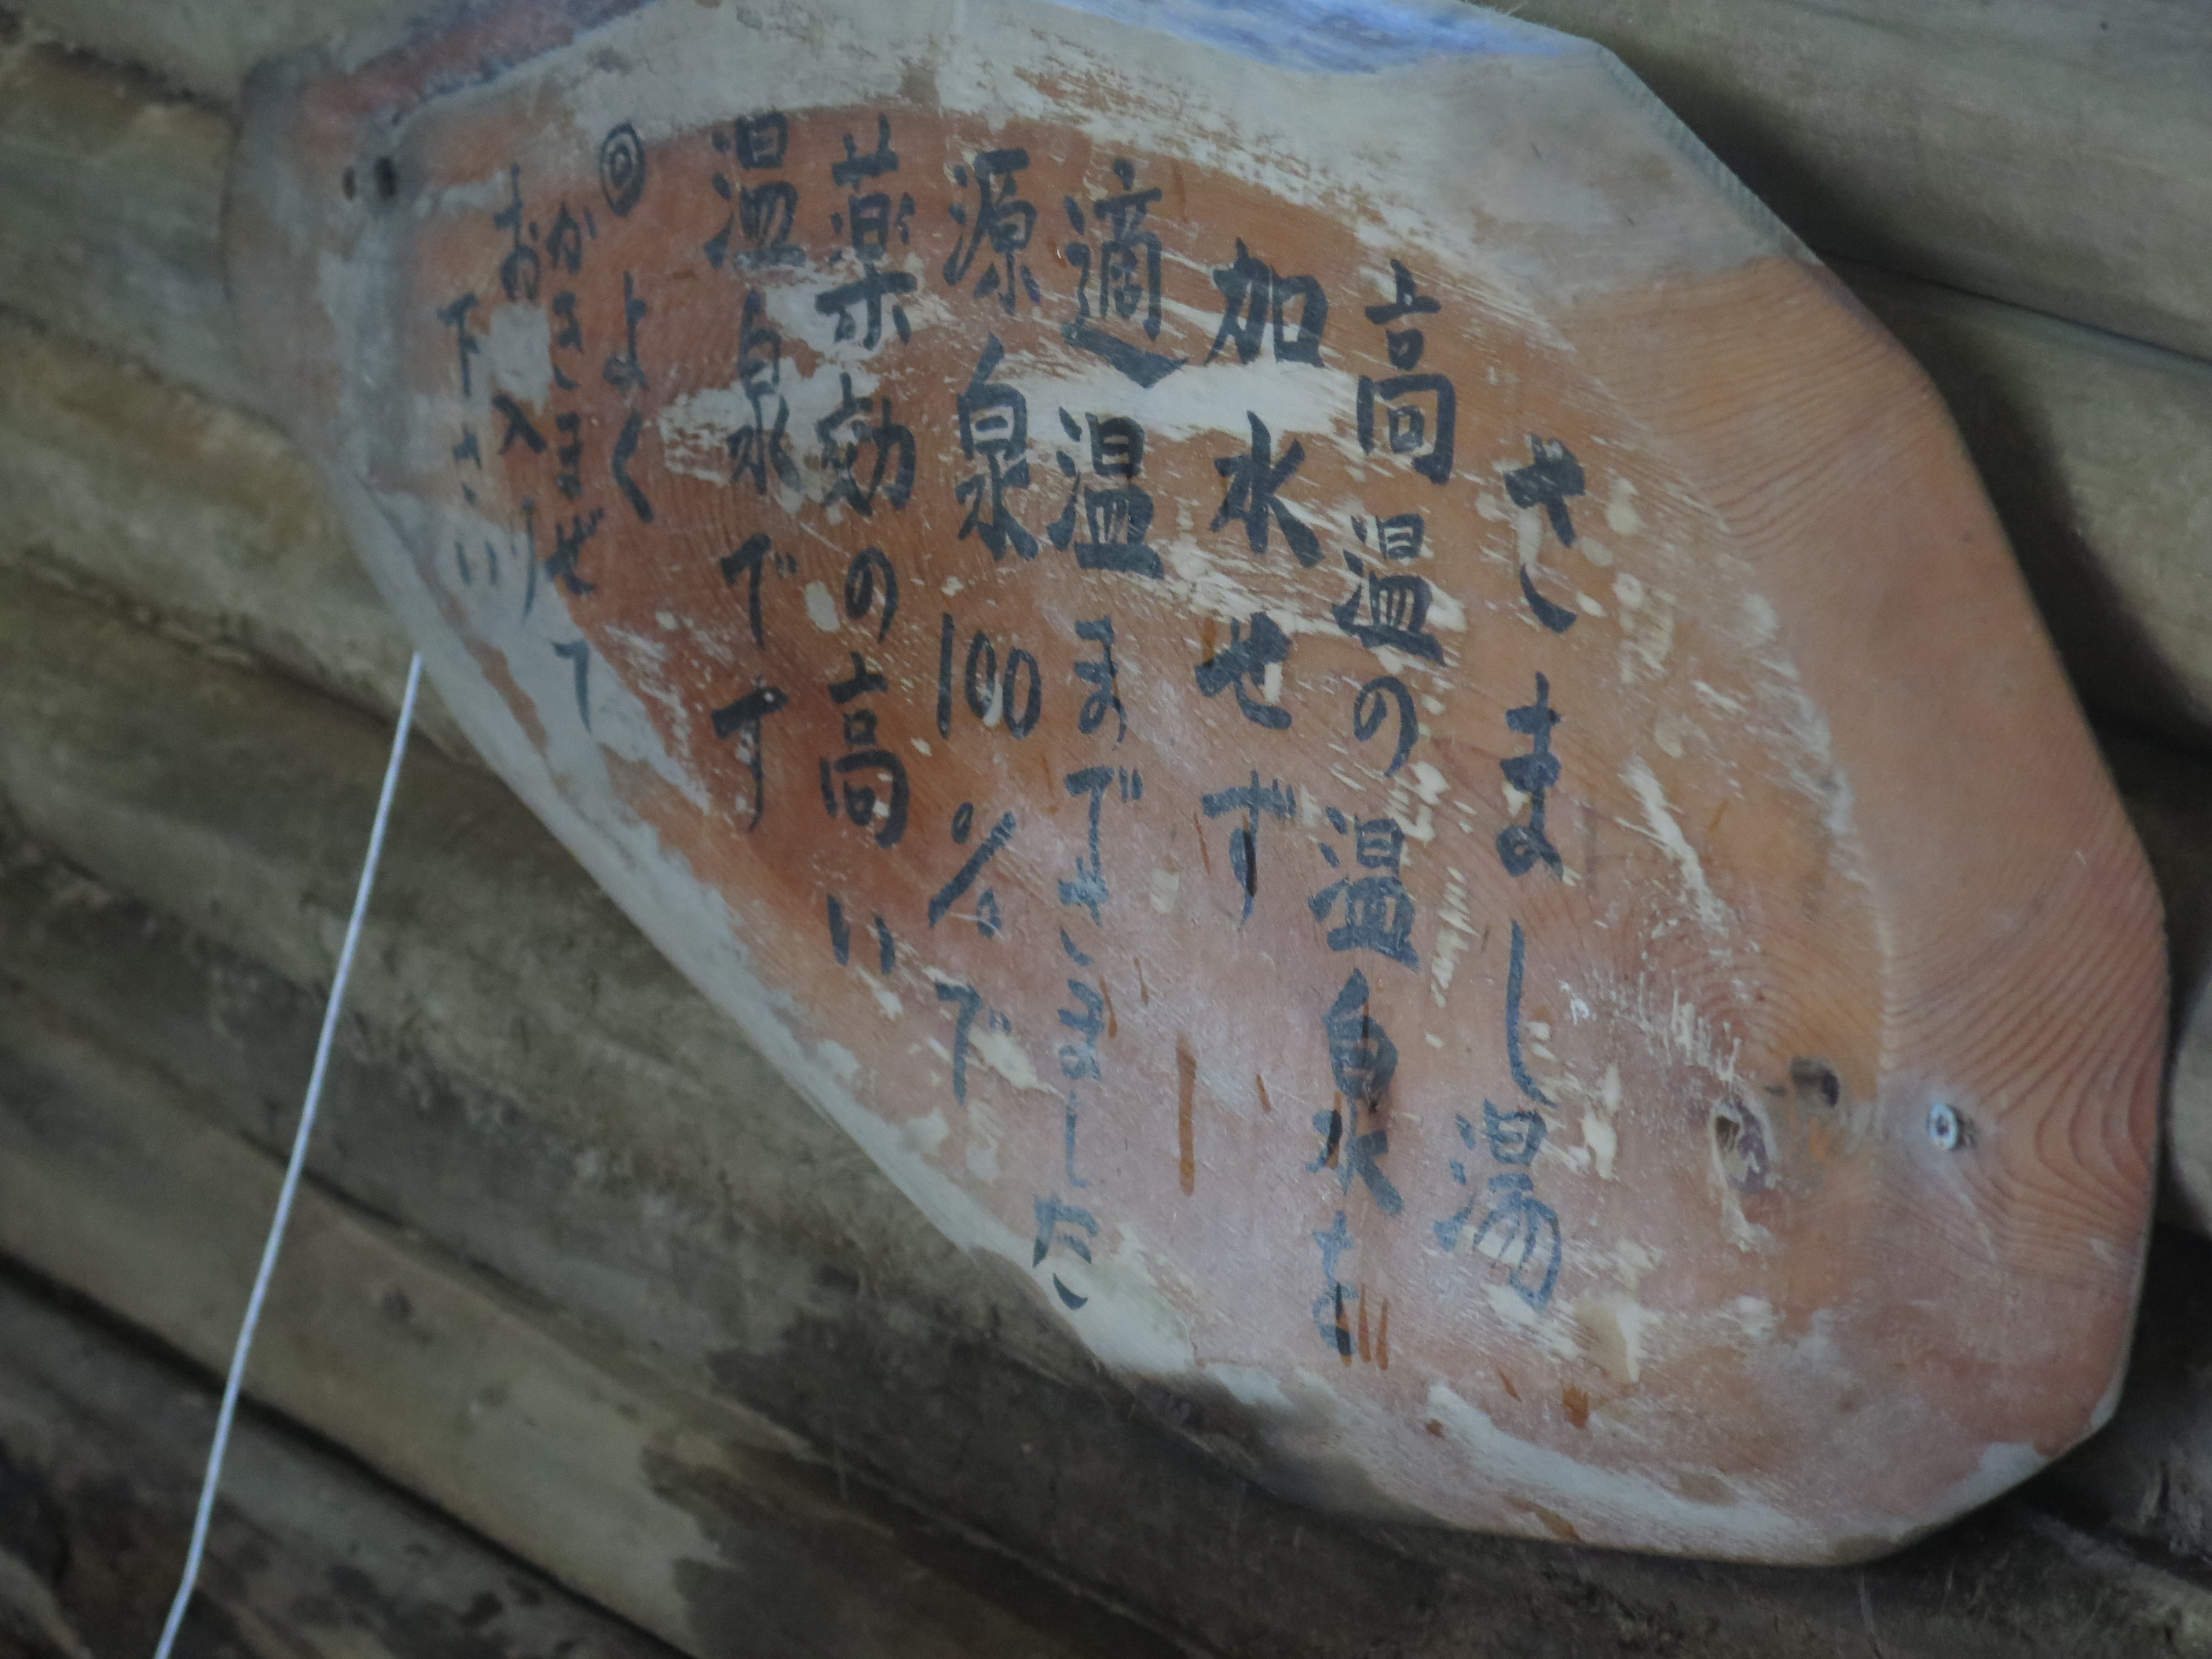 さまし湯
高温の温泉を
加水せず
適温までさました
源泉100%で
薬効の高い
温泉です
◎よく
かきまぜて
お入り
下さい